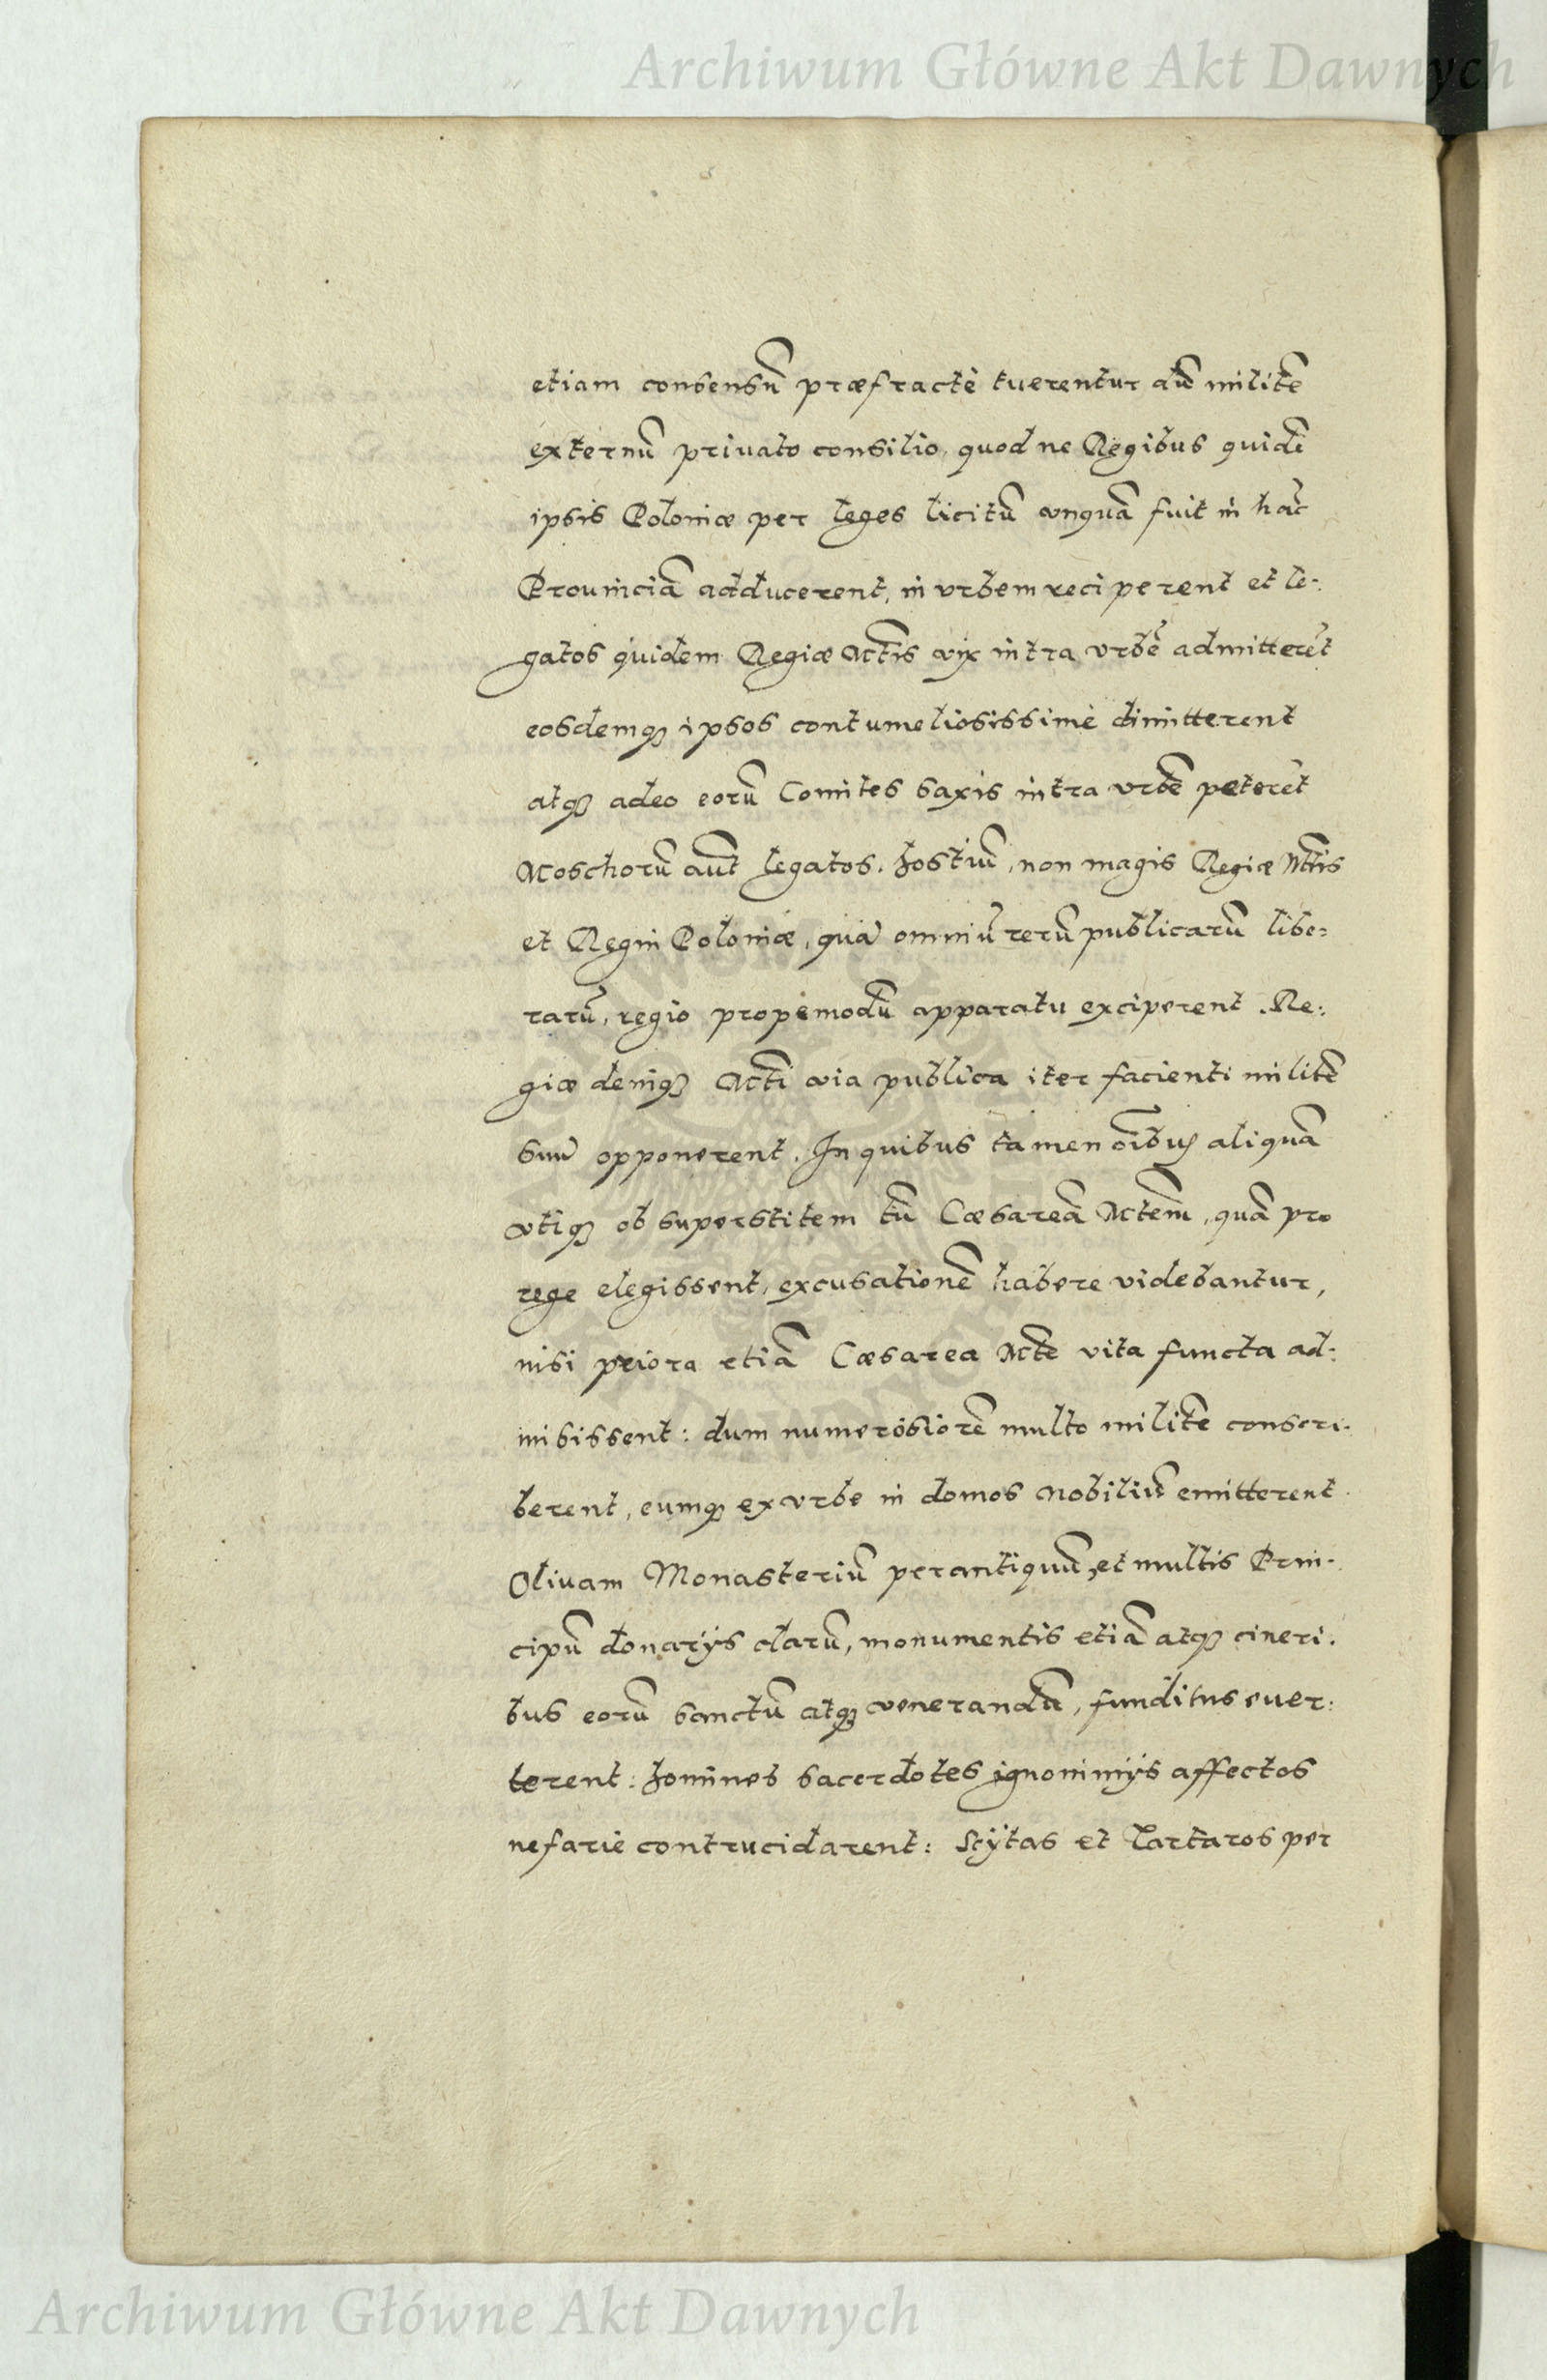 Archiwum Główne Akt Dawnych
etiam consensū præfractè tuerentur dū militē
externū priuato consilio, quod ne Regibus quidē
ipsis Poloniæ per leges licitū vnquā fuit in hāc
Prouinciā adducerent, in vrbem reciperent et le-
gatos quidem Regiæ Mtis vix intra vrbē admitterēt
eosdemq; ipsos contumeliosissimè dimitterent
atq; adeo eorū Comites saxis intra vrbē peterēt
Moschorū aūt legatos, hostiū, non magis Regiæ Mtis
et Regni Poloniæ, quā omniū rerū publicarū libe-
rarū, regio propemodū apparatu exciperent. Re-
giæ deniq; Mti via publica iter facienti militē
suū opponerent. In quibus tamen oībus aliquā
vtiq; ob superstitem tū Cæsareā Mtem, quā pro
rege elegissent, excusationē habere videbantur,
nisi peiora etiā Cæsarea Mte vita functa ad-
misissent: dum numerosiorē multo militē conscri-
berent, eumq; ex vrbe in domos Nobiliū emitterent.
Oliuam Monasteriū perantiquū, et multis Prin-
cipū donarijs clarū, monumentis etiā atq; cineri-
bus eorū sanctū atq; venerandū, funditus euer-
terent: homines sacerdotes ignominijs affectos
nefarie contrucidarent: Scÿtas et Tartaros per
Archiwum Główne Akt Dawnych